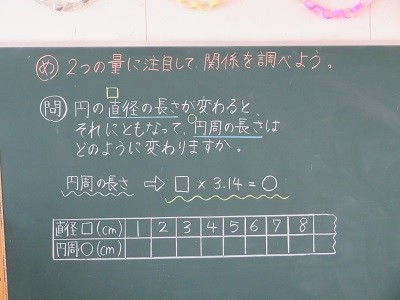 め 2つの量に注目して関係を調べよう。
問 円の直径の長さが変わると、
それにともなって、円周の長さは
どのように変わりますか。
円周の長さ ⇨ □ × 3.14 = ○
直径□(cm) 1 2 3 4 5 6 7 8
円周○(cm)